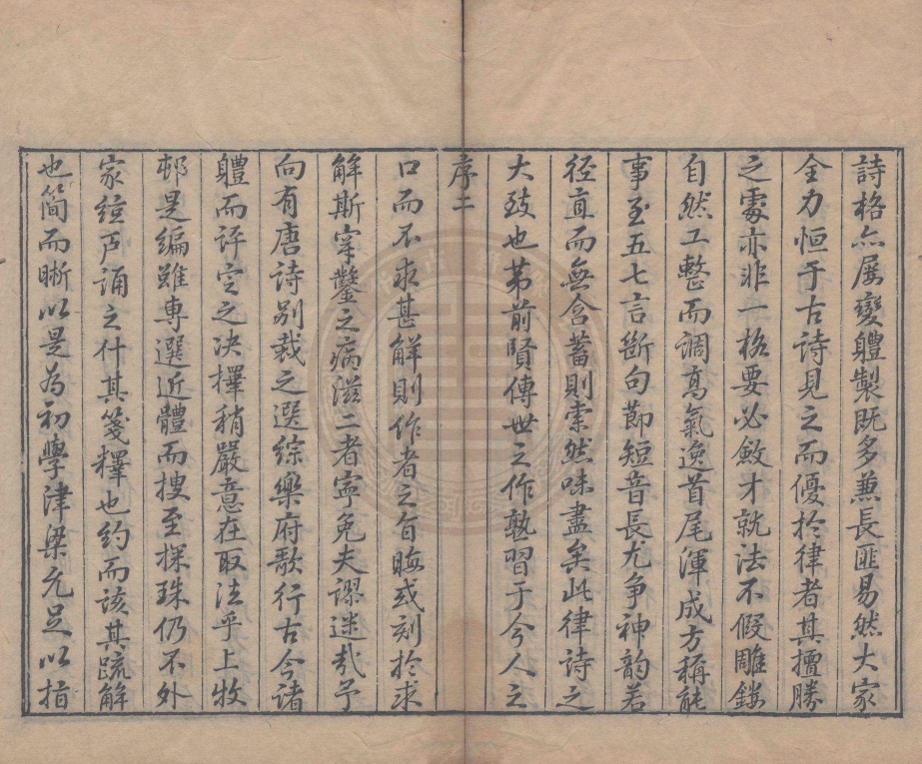 詩格亦屢變體製既多兼長匪易然大家
全力恒于古詩見之而優於律者其擅勝
之處亦非一格要必斂才就法不假雕鏤
自然工整而調高氣逸首尾渾成方稱能
事至五七言斷句節短音長尤爭神韵若
徑直而無含蓄則索然味盡矣此律詩之
大致也第前賢傳世之作熟習于今人之
序二
口而不求甚解則作者之旨晦或刻於求
解斯穿鑿之病滋二者寧免夫謬迷哉予
向有唐詩別裁之選綜樂府歌行古今諸
體而評定之决擇稍嚴意在取法乎上牧
邨是編雖專選近體而搜至探珠仍不外
家絃戶誦之什其箋釋也約而該其疏解
也簡而晰以是為初學津梁允足以指